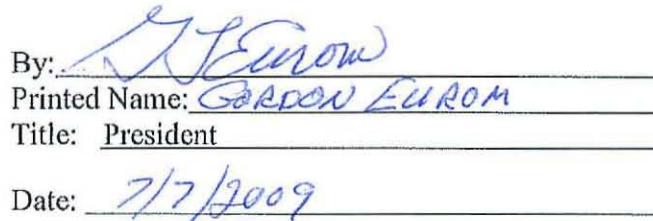 By: G J Eurom
Printed Name: GORDON EUROM
Title: President
Date: 7/7/2009